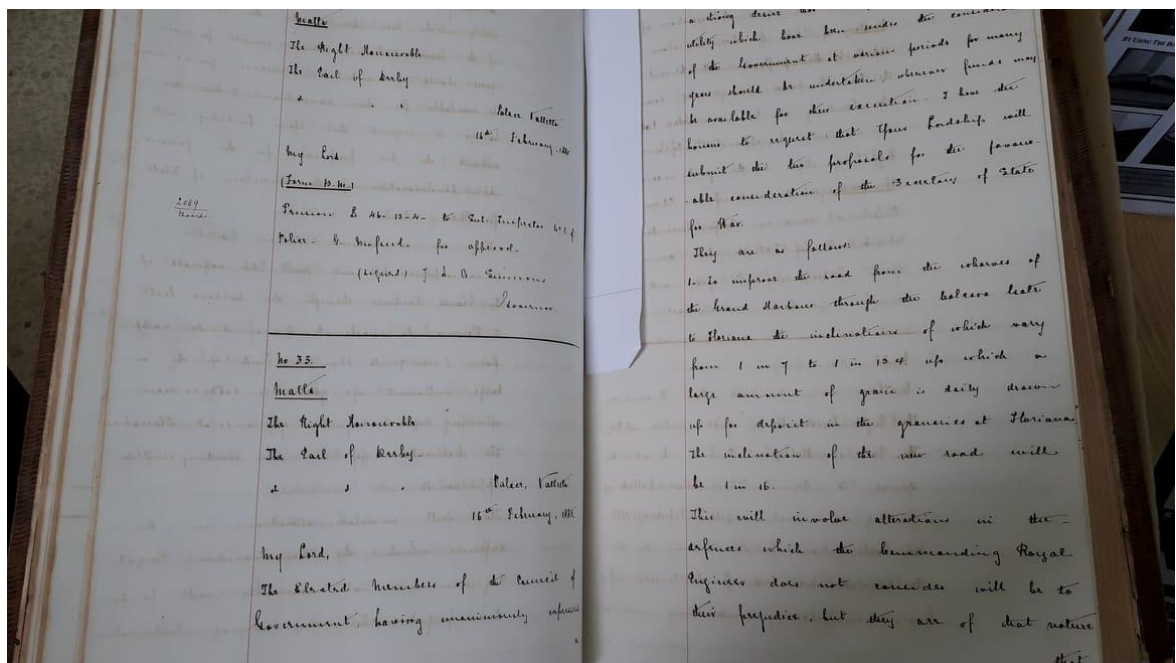 Malta
The Right Honourable
The Earl of Derby
" " "
Palace Valletta
16th February, 188
My Lord
(Form B. M.)
2089
Pension £ 46-13-4- to Sub. Inspector of
Police- G. for approval-
(signed) J. L. A. Simmons
Governor
No 35.
Malta
The Right Honourable
The Earl of Derby-
" " "
Palace, Valletta
16th February, 188
My Lord,
The Elected Members of the Council of
Government, having unanimously expressed
a strong desire that
utility which have been under the consideration
of the Government at various periods for many
years should be undertaken, whenever funds may
be available for their execution. I have the
honour to request that Your Lordship will
submit the two proposals for the favour-
-able consideration of the Secretary of State
for War.
They are as follows:
1- To improve the road from the wharves of
the Grand Harbour through the Calcara Gate
to Floriana the inclinations of which vary
from 1 in 7 to 1 in 13.4 up which a
large amount of grain is daily drawn
up for deposit in the granaries at Floriana
The inclination of the new road will
be 1 in 16.
This will involve alterations in the-
defences which the Commanding Royal
Engineer does not consider will be to
their prejudice, but they are of that nature
that
BY USING THE